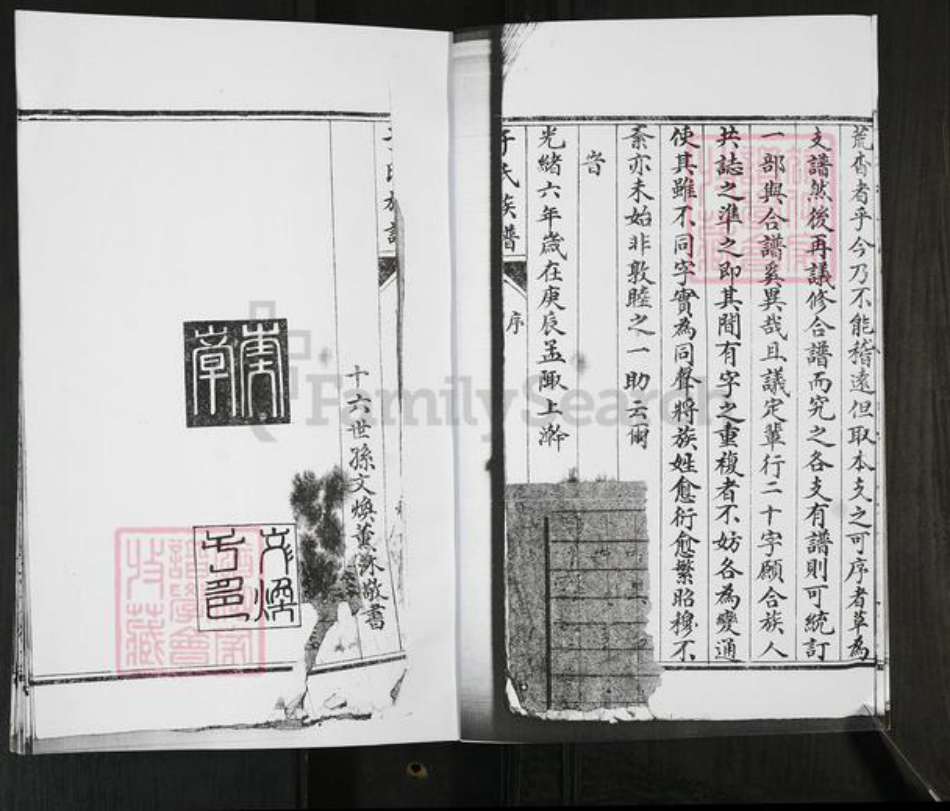 荒杳者乎今乃不能稽遠但取本支之可序者草為
支譜然後再議修合譜而究之各支有譜則可統訂
一部與合譜奚異哉且議定輩行二十字願合族人
共誌之準之即其間有字之重複者不妨各為變通
使其雖不同字實為同聲將族姓愈衍愈繁昭穆不
紊亦未始非敦睦之一助云爾
旹
光緒六年歲在庚辰孟陬上澣
于氏族譜
序
十六世孫文煥薰沐敬書
文煥
FamilySearch